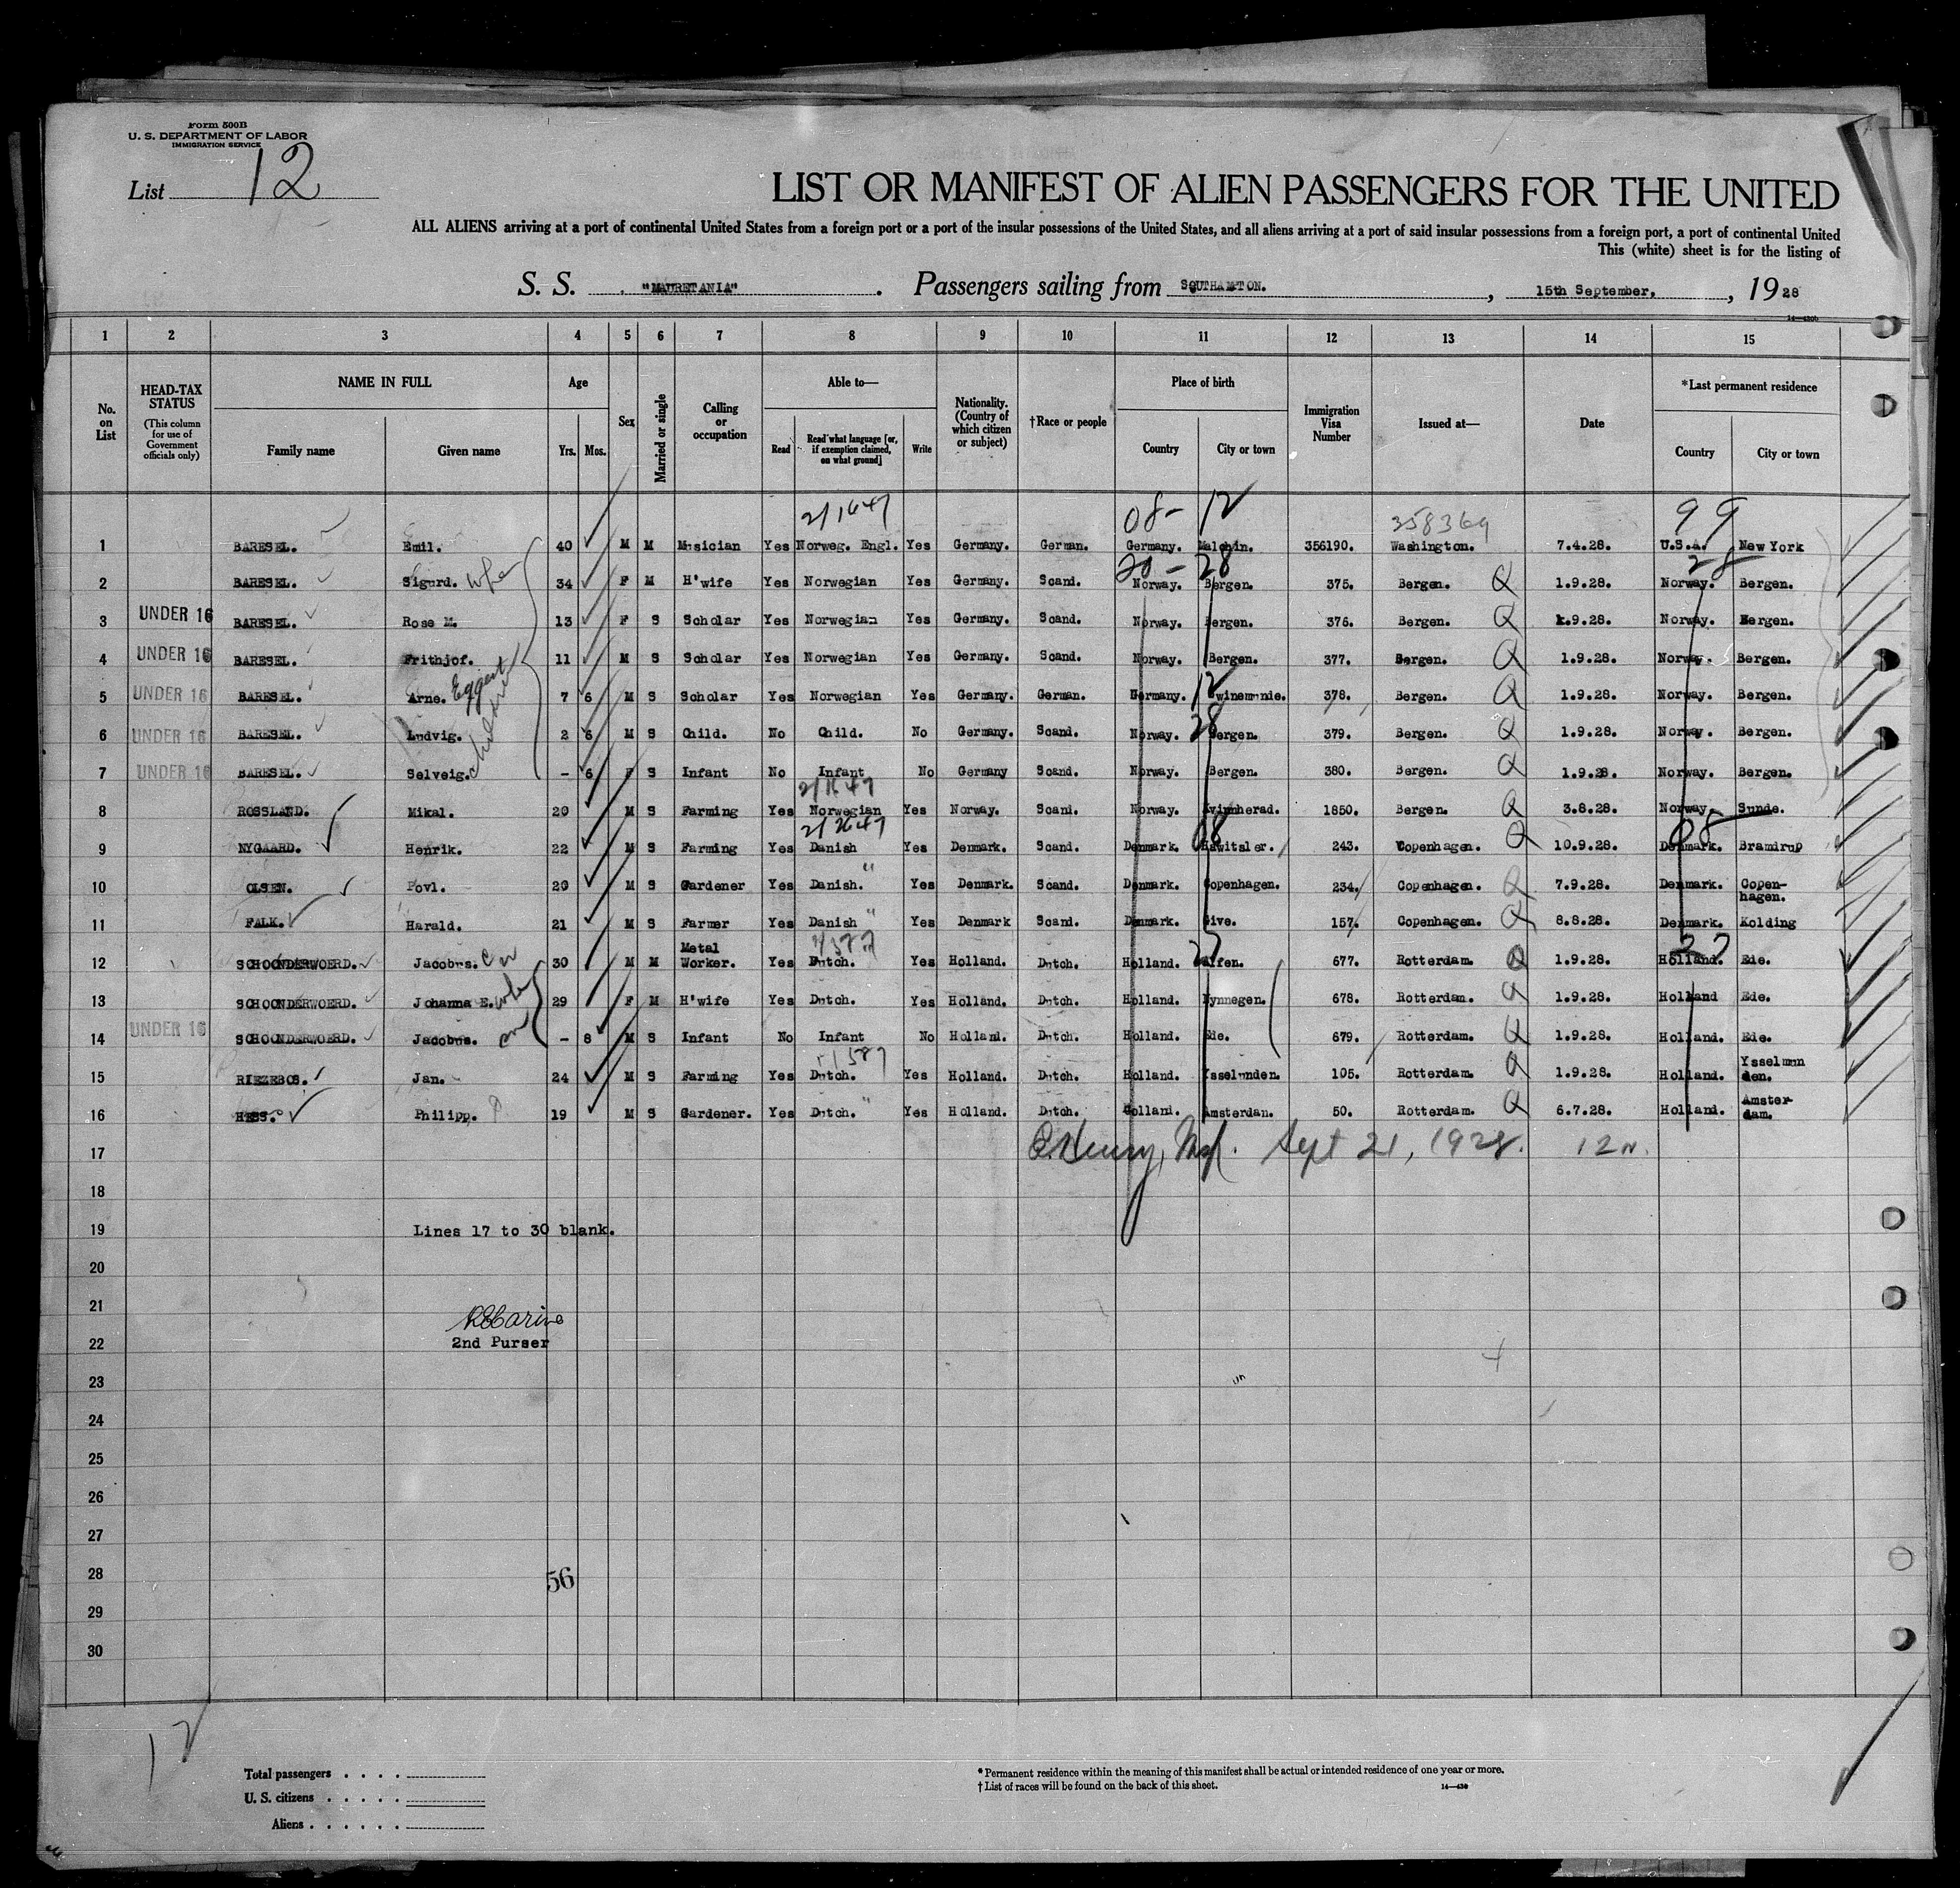 Form 500B
U. S. DEPARTMENT OF LABOR
IMMIGRATION SERVICE
List 12
LIST OR MANIFEST OF ALIEN PASSENGERS FOR THE UNITED
ALL ALIENS arriving at a port of continental United States from a foreign port or a port of the insular possessions of the United States, and all aliens arriving at a port of said insular possessions from a foreign port, a port of continental United
This (white) sheet is for the listing of
S. S. "MAURETANIA" . Passengers sailing from SOUTHAMTON. , 15th September, , 19 28
1 2 3 4 5 6 7 8 9 10 11 12 13 14 15
No. on List
HEAD-TAX STATUS (This column for use of Government officials only)
NAME IN FULL
Family name Given name
Age
Yrs. Mos.
Sex
Married or single
Calling or occupation
Able to—
Read Read what language [or, if exemption claimed, on what ground] Write
Nationality. (Country of which citizen or subject)
†Race or people
Place of birth
Country City or town
Immigration Visa Number
Issued at—
Date
*Last permanent residence
Country City or town
08- 12 358369 99
1 BARESEL. Emil. 40 M M Musician Yes Norweg. Engl. Yes Germany. German. Germany. Malchin. 356190. Washington. 7.4.28. U.S.A. New York
20- 28 28
2 BARESEL. Sigurd. wife 34 F M H'wife Yes Norwegian Yes Germany. Scand. Norway. Bergen. 375. Bergen. 1.9.28. Norway. Bergen.
3 UNDER 16 BARESEL. Rose M. 13 F S Scholar Yes Norwegian Yes Germany. Scand. Norway. Bergen. 376. Bergen. 1.9.28. Norway. Bergen.
4 UNDER 16 BARESEL. Frithjof. 11 M S Scholar Yes Norwegian Yes Germany. Scand. Norway. Bergen. 377. Bergen. 1.9.28. Norway. Bergen.
5 UNDER 16 BARESEL. Arne. Eggert 7 6 M S Scholar Yes Norwegian Yes Germany. German. Germany. Swinemunde. 378. Bergen. 1.9.28. Norway. Bergen.
children
6 UNDER 16 BARESEL. Ludvig. 2 6 M S Child. No Child. No Germany. Scand. Norway. Bergen. 379. Bergen. 1.9.28. Norway. Bergen.
7 UNDER 16 BARESEL. Selveig. - 6 F S Infant No Infant No Germany Scand. Norway. Bergen. 380. Bergen. 1.9.28. Norway. Bergen.
8 ROSSLAND. Mikal. 20 M S Farming Yes Norwegian Yes Norway. Scand. Norway. Kvinnherad. 1850. Bergen. 3.8.28. Norway. Sunde.
9 NYGAARD. Henrik. 22 M S Farming Yes Danish Yes Denmark. Scand. Denmark. 243. Copenhagen. 10.9.28. Denmark. Bramdrup
10 OLSEN. Povl. 20 M S Gardener Yes Danish. Yes Denmark. Scand. Denmark. Copenhagen. 234. Copenhagen. 7.9.28. Denmark. Copen-hagen.
11 FALK. Harald. 21 M S Farmer Yes Danish Yes Denmark Scand. Denmark. Give. 157. Copenhagen. 8.8.28. Denmark. Kolding
12 SCHOONDERWOERD. Jacobus. 30 M M Metal Worker. Yes Dutch. Yes Holland. Dutch. Holland. 677. Rotterdam. 1.9.28. Holland. Ede.
13 SCHOONDERWOERD. Johanna E. wife 29 F M H'wife Yes Dutch. Yes Holland. Dutch. Holland. Nynnegen. 678. Rotterdam. 1.9.28. Holland Ede.
14 UNDER 16 SCHOONDERWOERD. Jacobus. - 8 M S Infant No Infant No Holland. Dutch. Holland. Ede. 679. Rotterdam. 1.9.28. Holland. Ede.
15 RIEZEBOS. Jan. 24 M S Farming Yes Dutch. Yes Holland. Dutch. Holland. Ysselunden. 105. Rotterdam. 1.9.28. Holland. Ysselmunden.
16 HESS. Philipp. 19 M S Gardener. Yes Dutch. Yes Holland. Dutch. Holland. Amsterdan. 50. Rotterdam. 6.7.28. Holland. Amster-dam.
17 Sept 21, 1928.
18
19 Lines 17 to 30 blank.
20
21
22 2nd Purser
23
24
25
26
27
28 56
29
30
12
Total passengers . . . .
U. S. citizens . . . . .
Aliens . . . . . .
* Permanent residence within the meaning of this manifest shall be actual or intended residence of one year or more.
† List of races will be found on the back of this sheet. 14—430